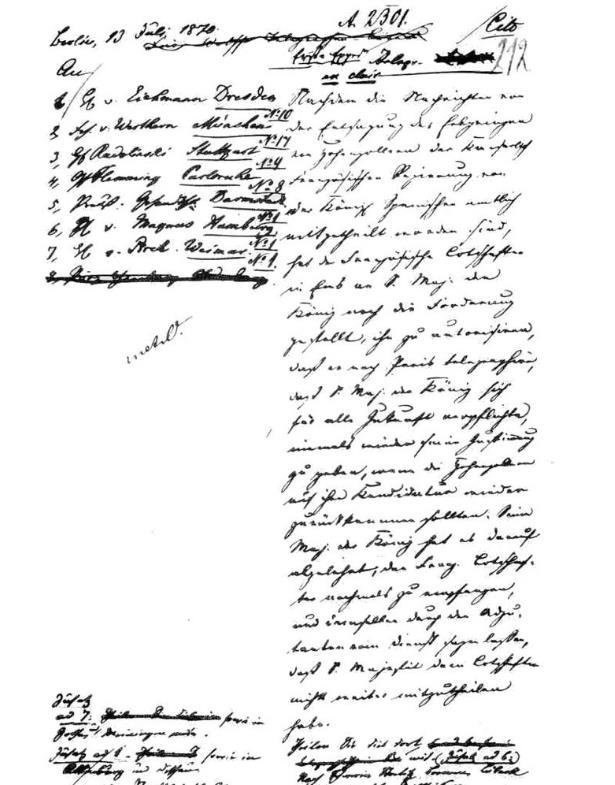 Berlin, 13 Juli 1870.
A. 2301.
Cito
212
Telegr.
en clair
An
1, v. Eichmann Dresden
No 10
2, v. Werthern München
No 17
3, Gf Radolinski Stuttgart
No 4
4, Gf Flemming Carlsruhe
No 8
5, Preuß. Darmstadt
No 1
6, v. Magnus Hamburg
No 1
7, v. Weimar
No 1
Nachdem die Nachrichten von
der Entsagung des Erbprinzen
von Hohenzollern der Kaiserlich
Französischen Regierung von
der Königl. Spanischen amtlich
mitgetheilt worden sind,
hat der Französische Botschafter
in Ems an S. Maj. den
König noch die Forderung
gestellt, ihn zu autorisiren,
daß er nach Paris telegraphire,
daß S. Maj. der König sich
für alle Zukunft verpflichte,
niemals wieder seine Zustimmung
zu geben, wenn die Hohenzollern
auf ihre Kandidatur wieder
zurückkommen sollten. Seine
Maj. der König hat es darauf
abgelehnt, den Franz. Botschaf-
ter nochmals zu empfangen,
und demselben durch den Adju-
tanten vom Dienst sagen lassen,
daß S. Majestät dem Botschafter
nichts weiter mitzutheilen
habe.
Zusatz
ad 7: sowie in
Zusatz ad 1 sowie in
Altenburg und Dessau
Theilen Sie dies dort
mit. (Zusatz ad 6: